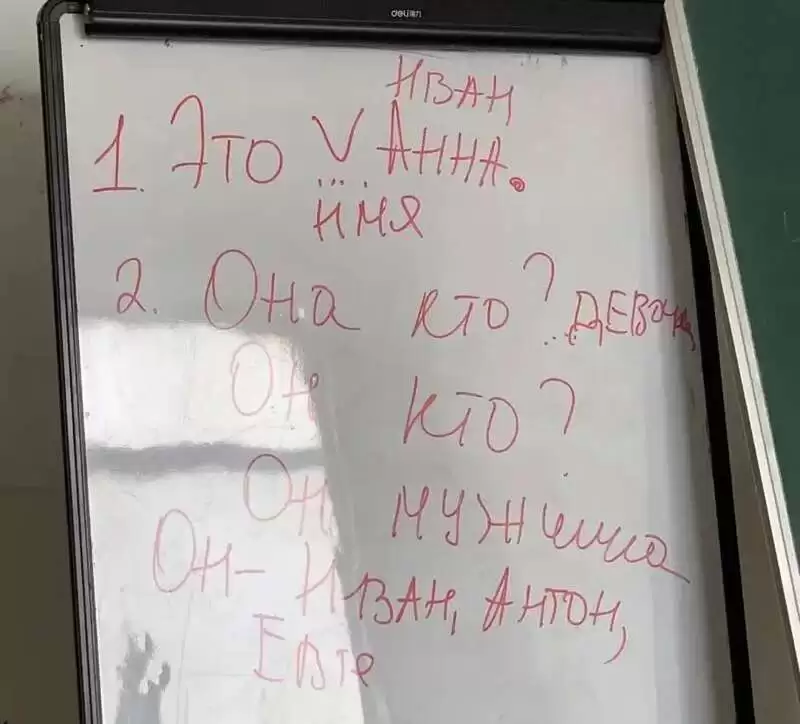 deli
ИВАН
1. Это V АННА.
ИМЯ
2. Она кто? ДЕВОЧКА
Он кто?
Он мужчина
Он - ИВАН, АНТОН,